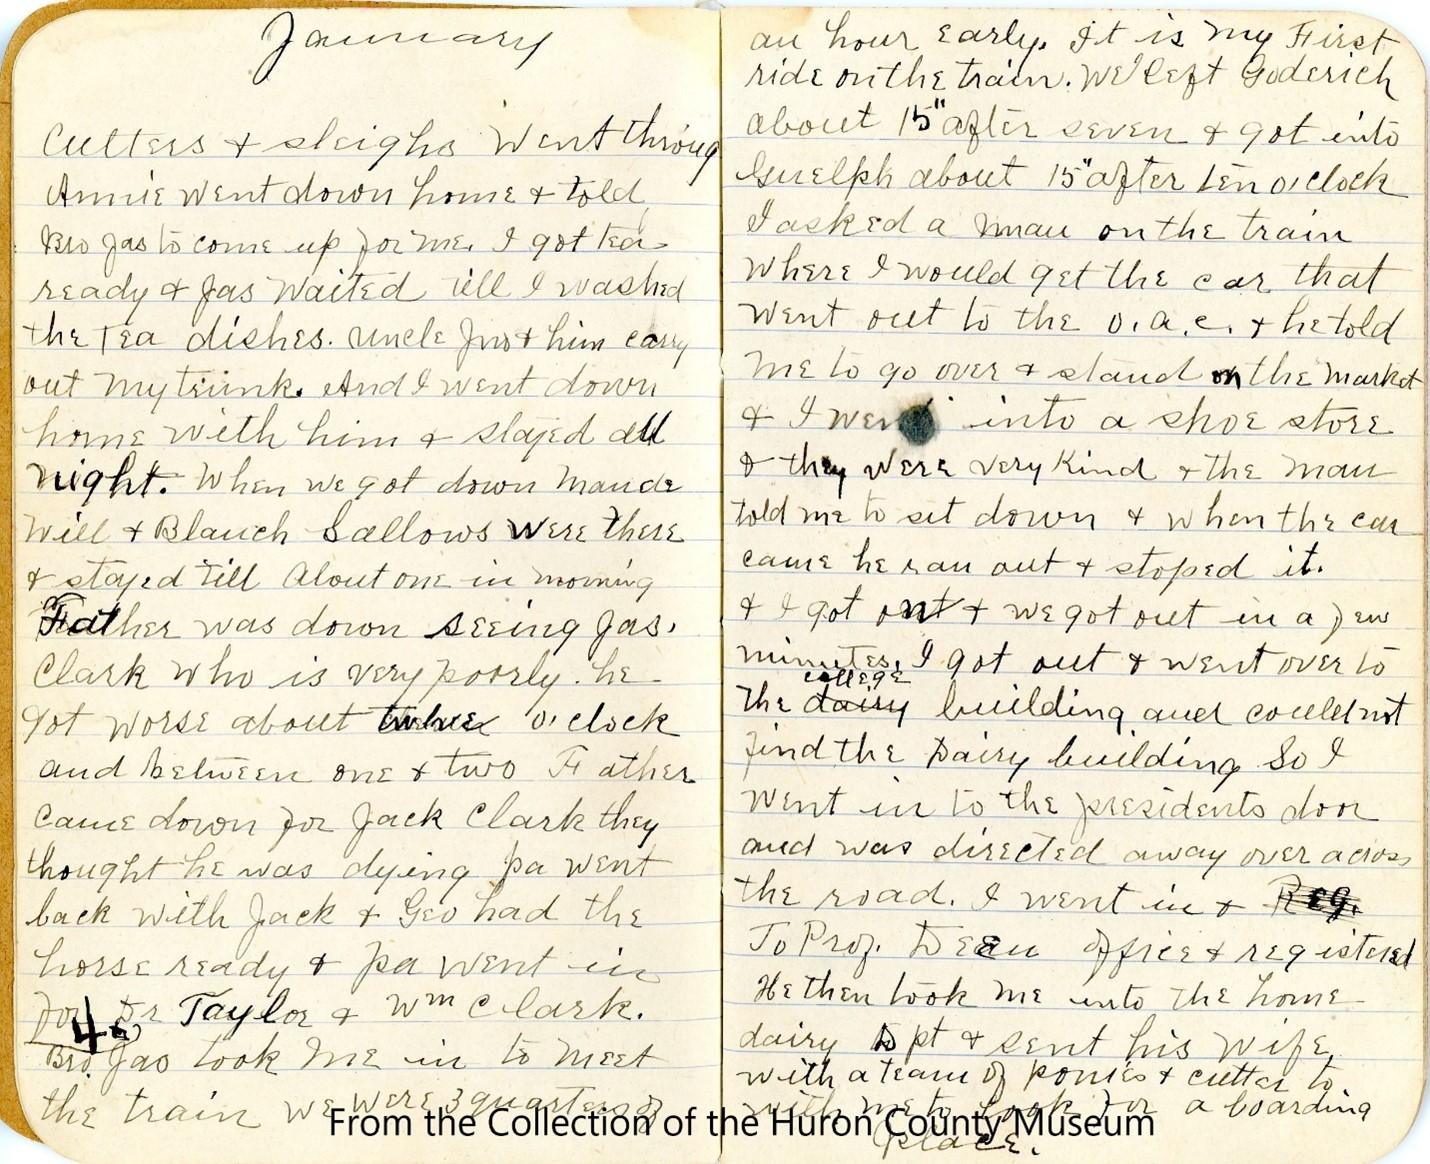 January
Cutters & sleighs Went throug
Annie went down home & told
Bro Jas to come up for me. I got tea
ready & Jas Waited till I washed
the Tea dishes. Uncle Jno & him carry
out my trunk. And I went down
home with him & stayed all
night. When we got down Maude
Will & Blanch Sallows were there
& stayed till About one in morning
Father was down seeing Jas.
Clark who is very poorly. he
got worse about twelve o'clock
and between one & two Father
came down for Jack Clark they
thought he was dying pa went
back with Jack & Geo had the
horse ready & pa went in
for Dr Taylor & Wm Clark.
4
Bro Jas took me in to meet
the train we were 3 quarters of
an hour early. It is my First
ride on the train. We left Goderich
about 15" after seven & got into
Guelph about 15" after ten o'clock
I asked a man on the train
where I would get the car that
went out to the O.A.C. & he told
me to go over & stand on the market
& I went into a shoe store
& they were very Kind & the man
told me to sit down & when the car
came he ran out & stoped it.
& I got on & we got out in a few
minutes. I got out & went over to
college
the dairy building and could not
find the Dairy building So I
went in to the presidents door
and was directed away over across
the road. I went in & Reg.
To Prof. Dean office & registered
He then took me into the home
dairy Dpt & sent his wife
with a team of ponies & cutter to
with me to look for a boarding
place.
From the Collection of the Huron County Museum